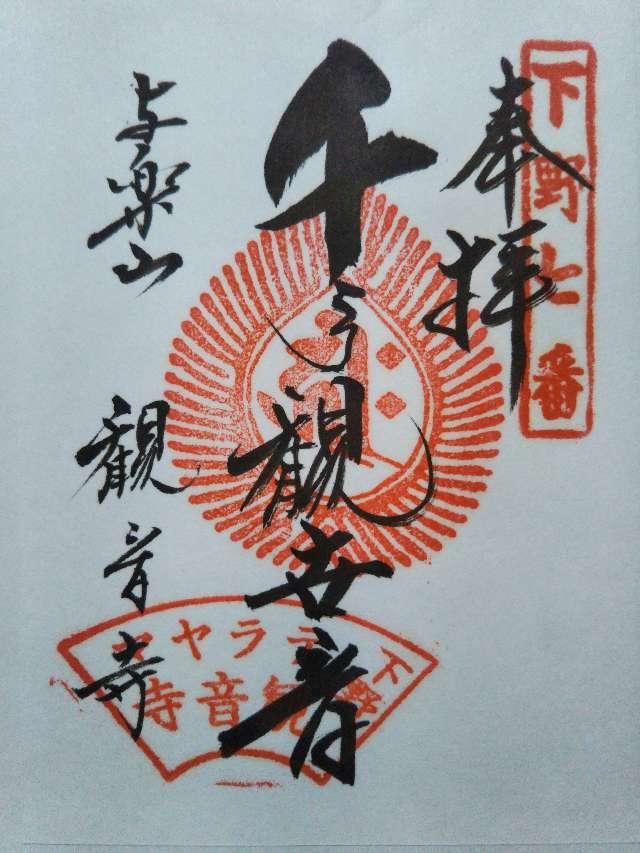 下野七番
奉拝
千手観世音
与楽山
観音寺
観音寺